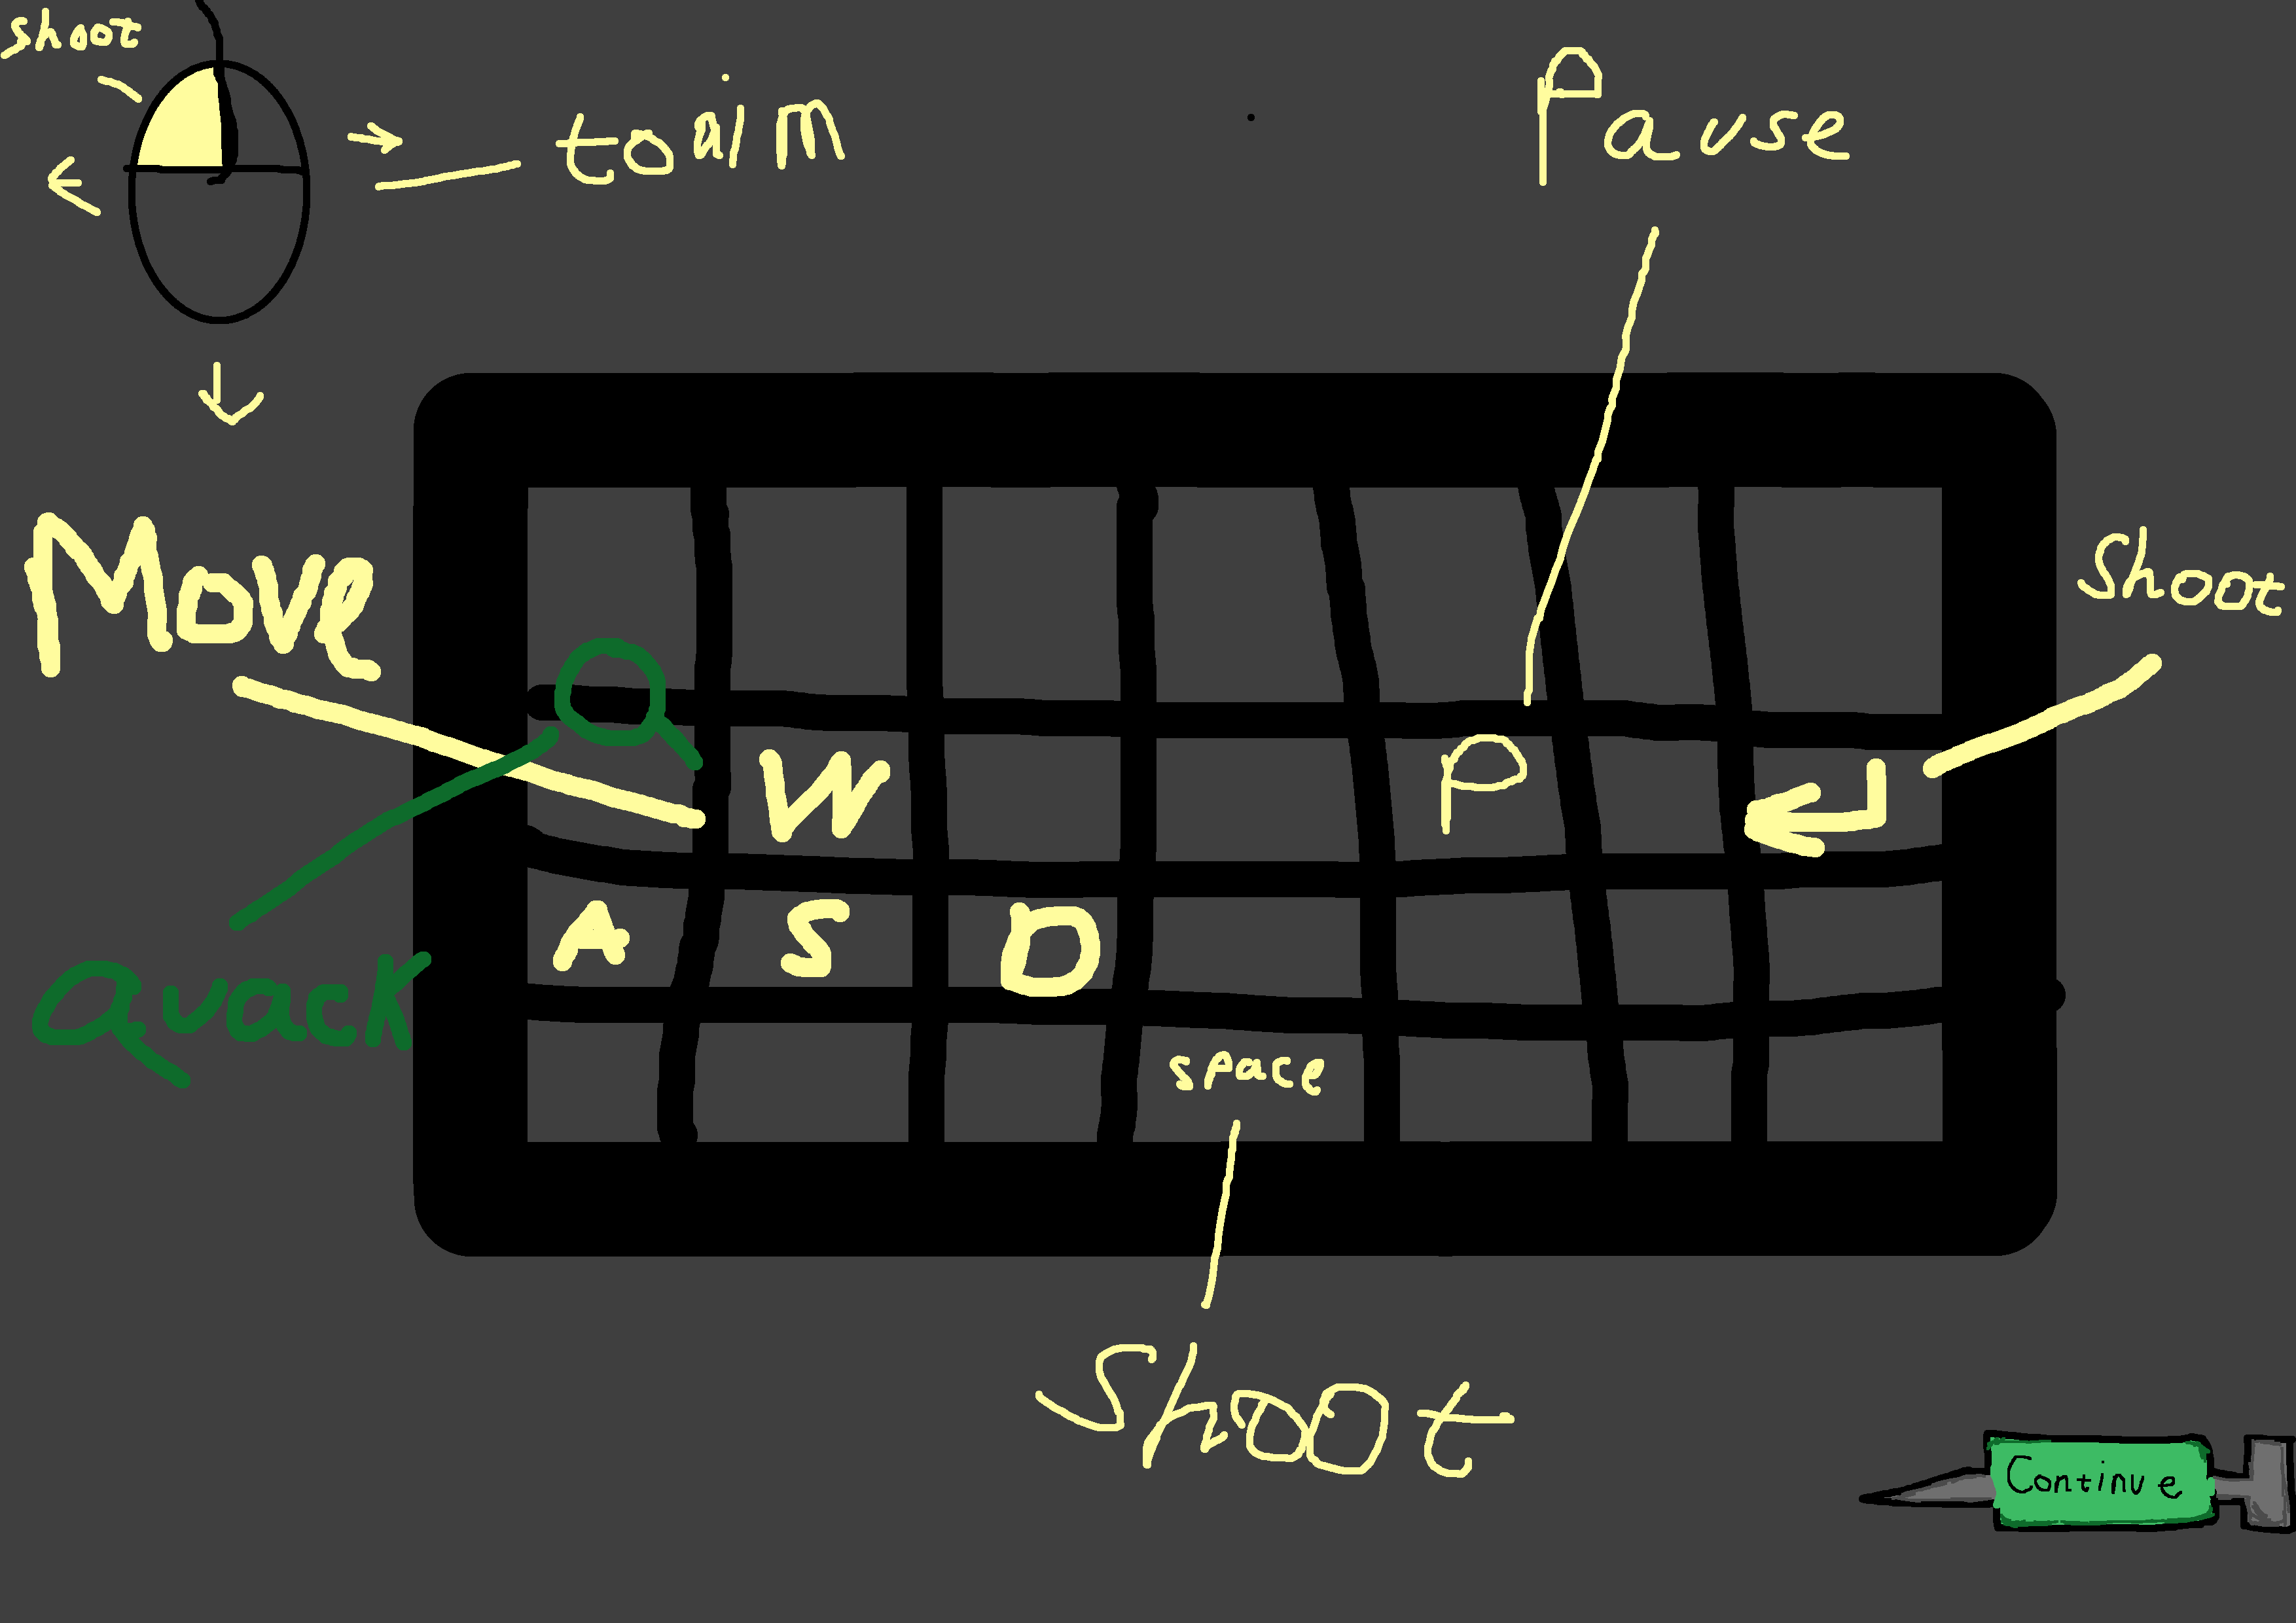 shoot
to aim
Pause
Move
Shoot
Q
W
P
A S D
Quack
space
Shoot
Continue